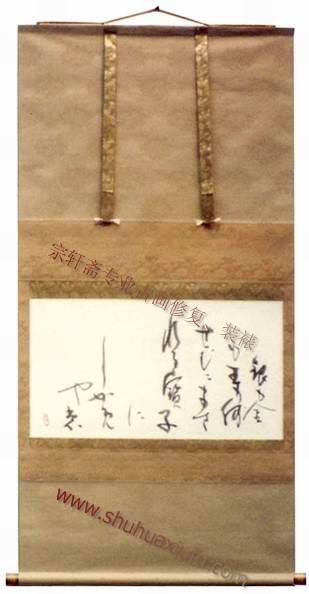 銀も金
も玉も何
せむにまさ
れる寶子
に
しかめ
やも
宗轩斋专业书画修复、装裱
www.shuhuaxiufu.com